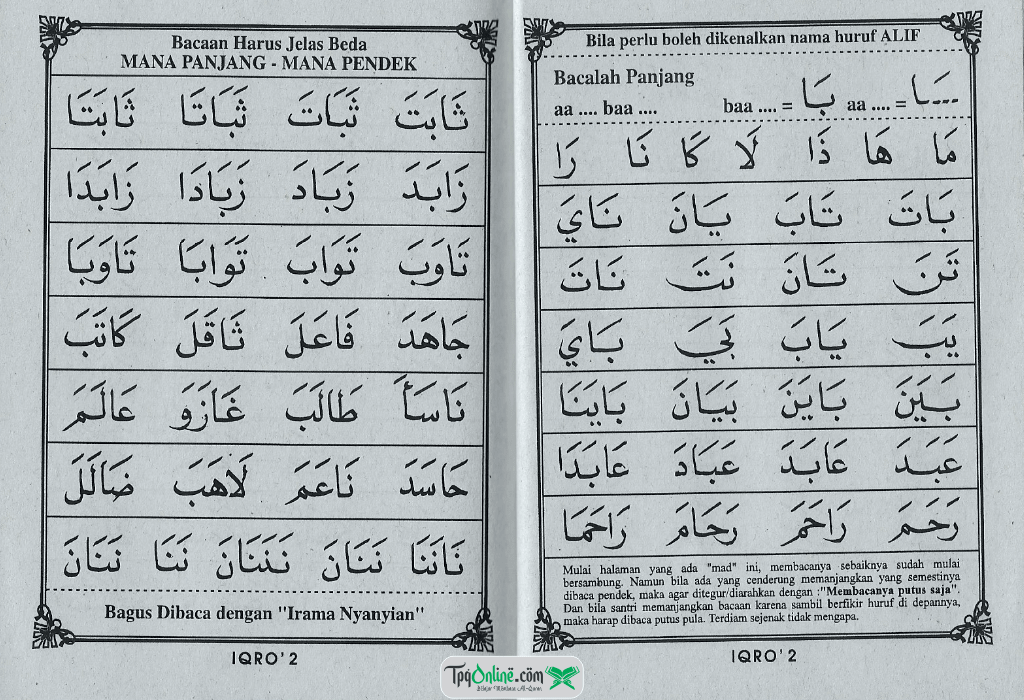 Bila perlu boleh dikenalkan nama huruf ALIF
Bacalah Panjang
aa .... baa .... baa .... = بَا aa .... = ـَا
مَا هَا ذَا لَا كَا نَا رَا
بَاتَ تَابَ يَانَ نَايَ
تَنَ تَانَ نَتَ نَاتَ
يَبَ يَابَ بَيَ بَايَ
بَيَنَ بَايَنَ بَيَانَ بَايَنَا
عَبَدَ عَابَدَ عَبَادَ عَابَدَا
رَحَمَ رَاحَمَ رَحَامَ رَاحَمَا
Mulai halaman yang ada "mad" ini, membacanya sebaiknya sudah mulai
bersambung. Namun bila ada yang cenderung memanjangkan yang semestinya
dibaca pendek, maka agar ditegur/diarahkan dengan :"Membacanya putus saja".
Dan bila santri memanjangkan bacaan karena sambil berfikir huruf di depannya,
maka harap dibaca putus pula. Terdiam sejenak tidak mengapa.
IQRO' 2
Bacaan Harus Jelas Beda
MANA PANJANG - MANA PENDEK
ثَابَتَ ثَبَاتَ ثَبَاتَا ثَابَتَا
زَابَدَ زَبَادَ زَبَادَا زَابَدَا
تَاوَبَ تَوَابَ تَوَابَا تَاوَبَا
جَاهَدَ فَاعَلَ ثَاقَلَ كَاتَبَ
نَاسَأَ طَالَبَ غَازَوَ عَالَمَ
حَاسَدَ نَاعَمَ لَاهَبَ ضَالَلَ
نَانَنَا نَنَانَ نَنَنَانَ نَنَا نَنَانَ
Bagus Dibaca dengan "Irama Nyanyian"
IQRO' 2
TpqOnline.com
Belajar Membaca Al-Quran